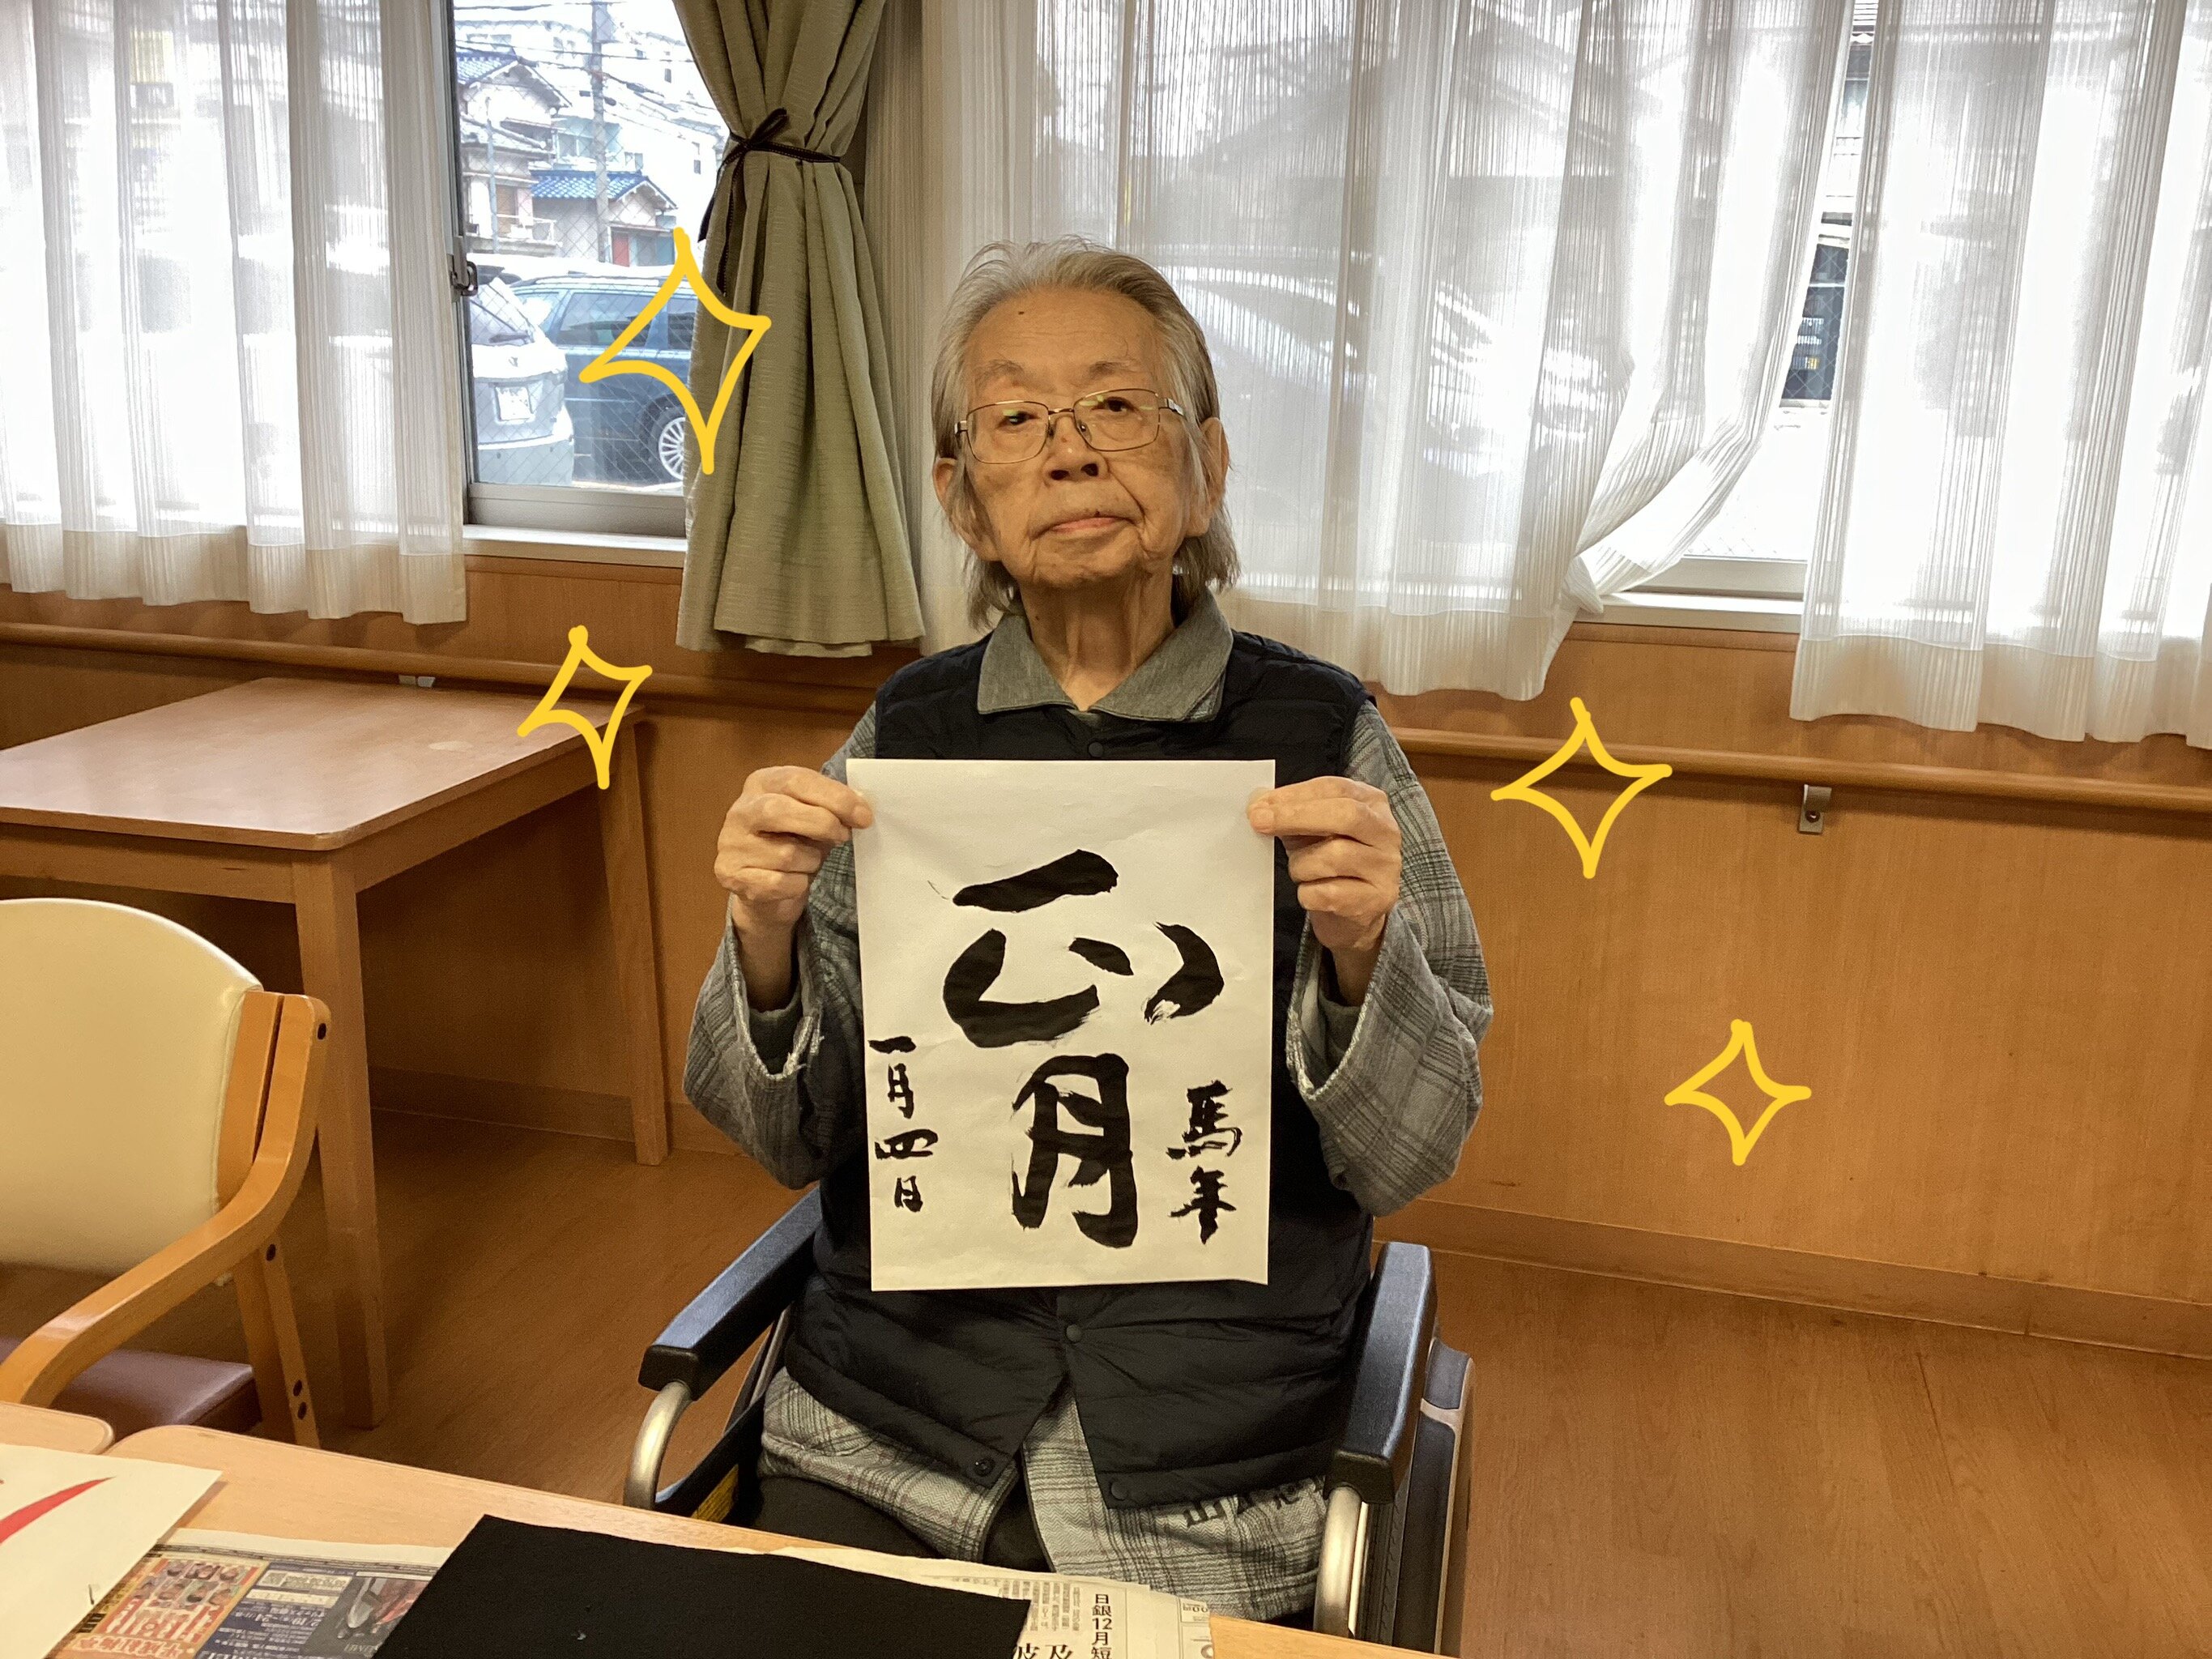 馬年
正月
一月四日
日銀12月短
波及